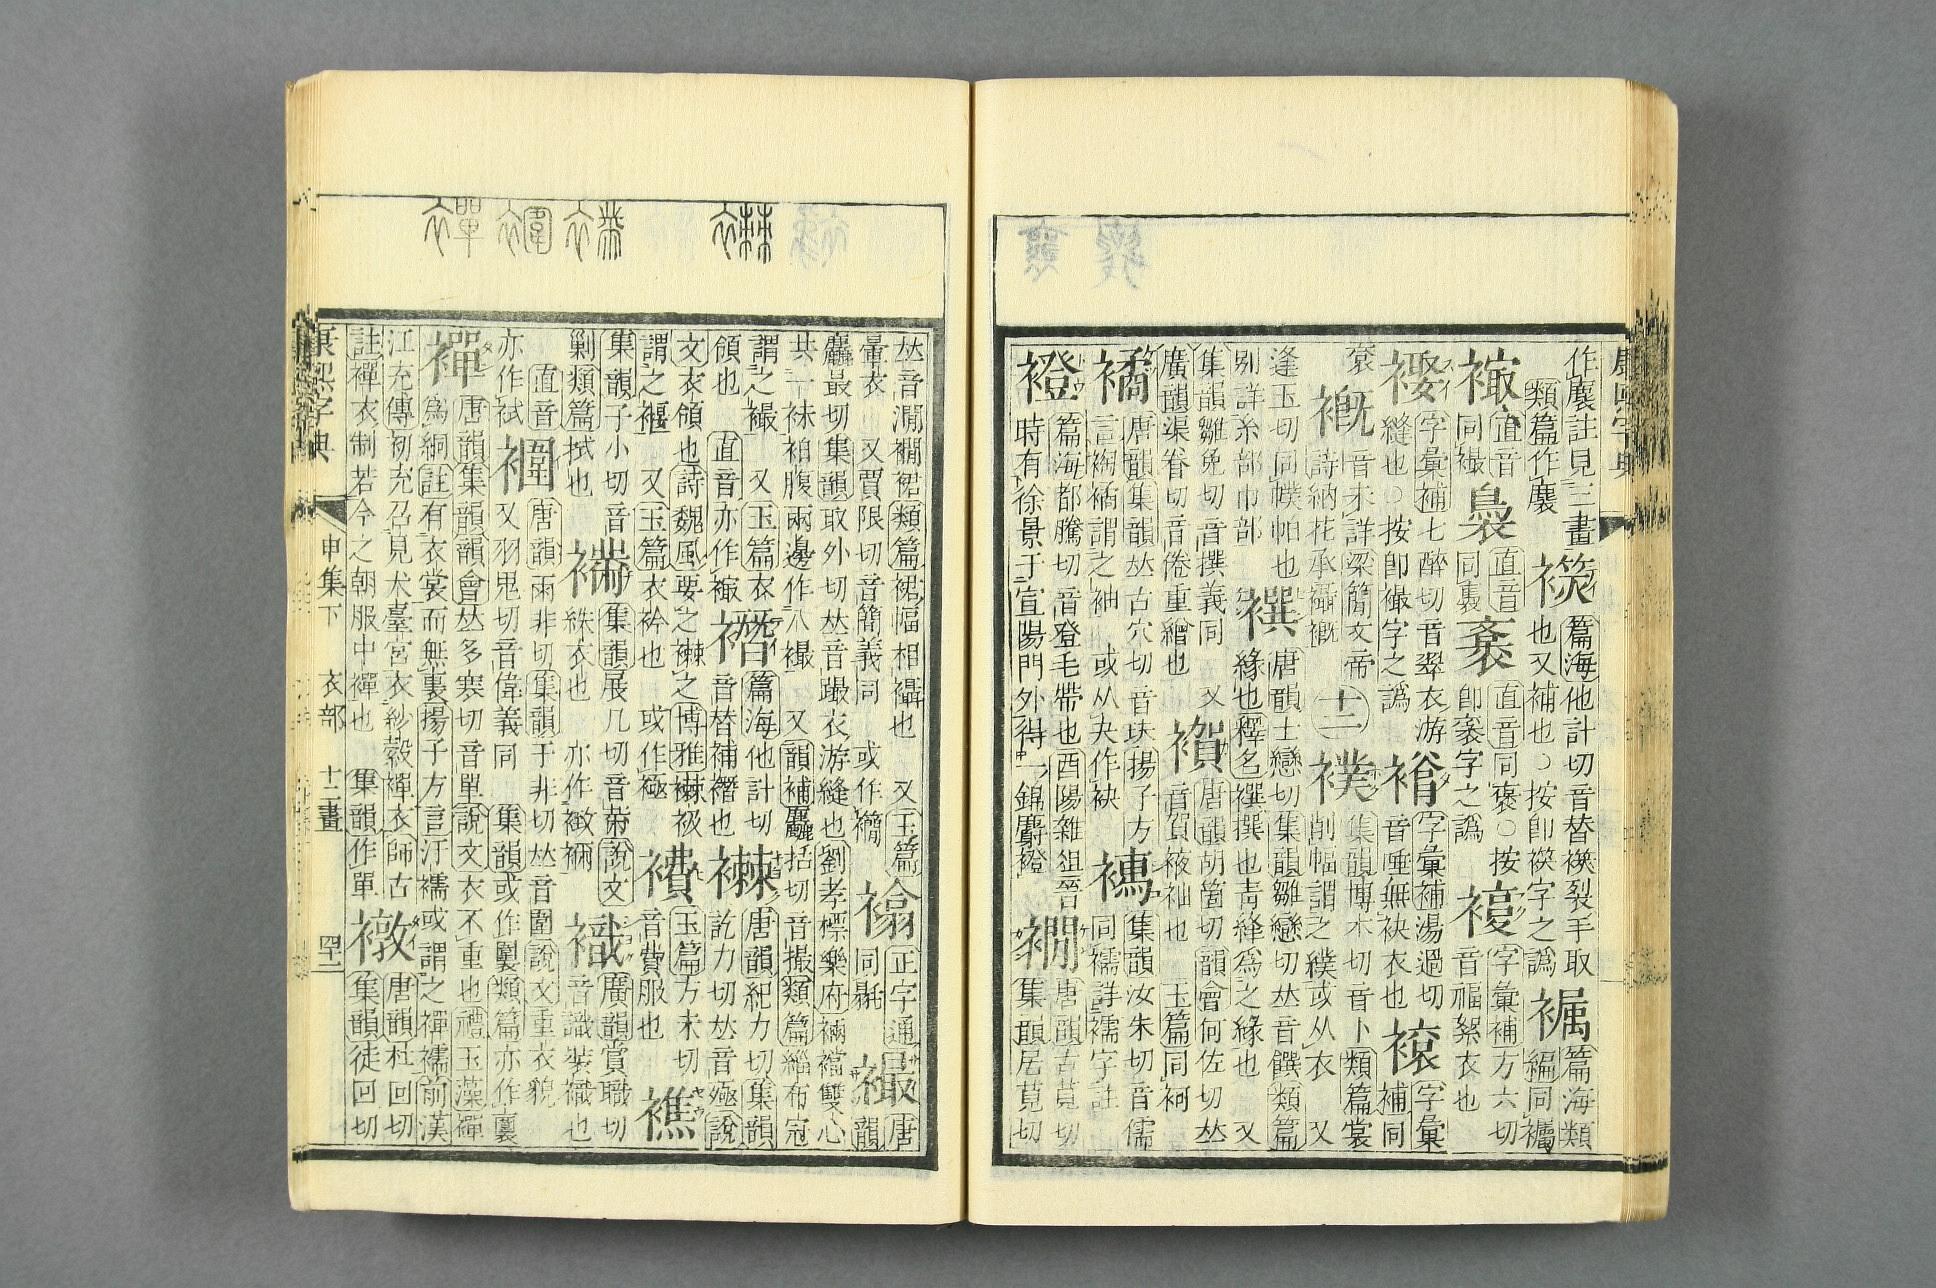 作襄註見三畫
類篇作襄
禊 篇海他計切音替禊裂手取
也又補也○按卽禊字之譌
篇海類
編同襹
直音
同襊
裊 直音
同裊
直音同褒○按
卽袠字之譌
字彙補方六切
音福絮衣也
字彙補七醉切音翠衣游
縫也○按卽襊字之譌
字彙補湯過切
音唾無袂衣也
字彙
補同
袞
音未詳梁簡文帝
詩納花承襵
十二
襆 集韻博木切音卜類篇裳
削幅謂之襆或从衣 又
逢玉切同幞帕也
别詳糸部巾部
襈 唐韻士戀切集韻雛戀切𠀤音饌類篇
緣也釋名襈撰也靑絳爲之緣也 又
集韻雛免切音撰義同 又
廣韻渠眷切音倦重繒也
唐韻胡箇切韻會何佐切𠀤
音賀袚衪也 玉篇同袔
襦 唐韻集韻𠀤古穴切音玦揚子方
言謂之袖 或从夬作袂
集韻汝朱切音儒
同襦詳襦字註
篇海都騰切音登毛帶也酉陽雜俎晉
時有徐景于宣陽門外得一錦麝
襉 唐韻古莧切
集韻居莧切
𠀤音澗襉裙類篇裙幅相襵也 又玉篇
暈衣 又賈限切音簡義同 或作襇
正字通
同毾
襊 唐
韻
麤最切集韻取外切𠀤音衣游縫也劉孝標樂府裲襠雙心
共一袜袙腹兩邊作八襊 又韻補麤括切音撮類篇緇布冠
謂之襊 又玉篇衣
領也 直音亦作
篇海他計切
音替補也
襋 唐韻紀力切集韻
訖力切𠀤音殛說
文衣領也詩魏風要之襋之博雅襋衱
謂之褗 又玉篇衣衿也 或作
玉篇方未切
音費服也
集韻子小切音
剿類篇拭也
集韻展几切音黹說文
紩衣也 亦作
廣韻賞職切
音識裝也
直音
亦作
唐韻雨非切集韻于非切𠀤音圍說文重衣貌
又羽鬼切音偉義同 集韻或作類篇亦作
襌 唐韻集韻韻會𠀤多寒切音單說文衣不重也禮玉藻襌
爲絅註有衣裳而無裏揚子方言汗襦或謂之襌襦前漢
江充傳初充召見犬臺宮衣紗縠襌衣師古
註襌衣制若今之朝服中襌也 集韻作單
唐韻杜回切
集韻徒回切
康熙字典 申集下 衣部 十二畫 四十二